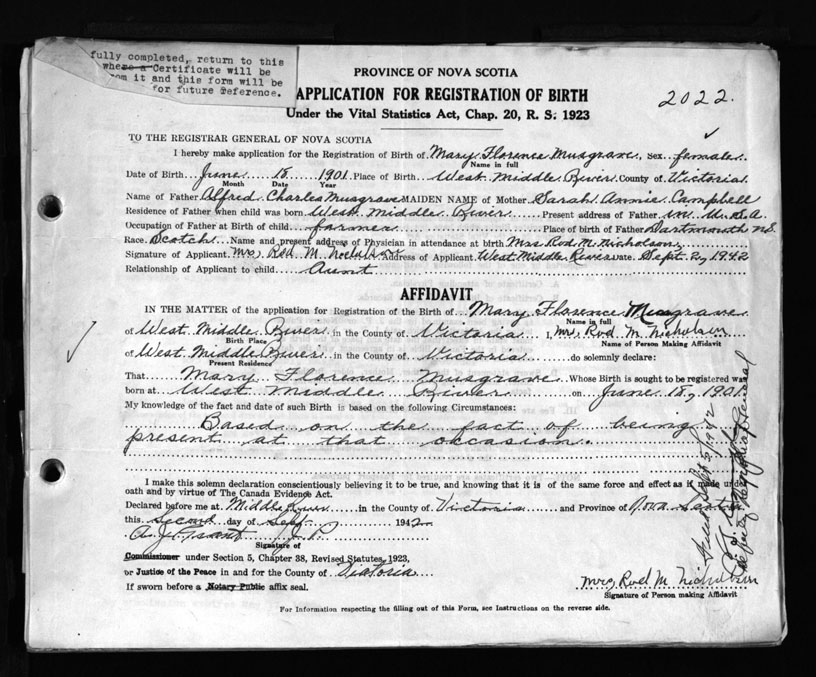 fully completed, return to this
where a Certificate will be
it and this form will be
for future reference.
PROVINCE OF NOVA SCOTIA
APPLICATION FOR REGISTRATION OF BIRTH
2022.
Under the Vital Statistics Act, Chap. 20, R. S. 1923
TO THE REGISTRAR GENERAL OF NOVA SCOTIA
I hereby make application for the Registration of Birth of Mary Florence Musgrave, sex female
Name in full
Date of Birth June 18 1901 Place of Birth West Middle River County of Victoria
Month Date Year
Name of Father Alfred Charles Musgrave MAIDEN NAME of Mother Sarah Annie Campbell
Residence of Father when child was born West Middle River Present address of Father in U.S.A
Occupation of Father at Birth of child farmer Place of birth of Father Dartmouth N.S.
Race Scotch Name and present address of Physician in attendance at birth Mrs Rod. M. Nicholson
Signature of Applicant Mrs. Rod M Nicholson Address of Applicant West Middle River Date Sept. 2, 1942
Relationship of Applicant to child Aunt
AFFIDAVIT
IN THE MATTER of the application for Registration of the Birth of Mary Florence Musgrave
Name in full
of West Middle River in the County of Victoria I, Mrs Rod M Nicholson
Birth Place Name of Person Making Affidavit
of West Middle River in the County of Victoria do solemnly declare:
Present Residence
That Mary Florence Musgrave Whose Birth is sought to be registered was
born at West Middle River on June 18, 1901
My knowledge of the fact and date of such Birth is based on the following Circumstances:
Based on the fact of being
present at that occasion.
I make this solemn declaration conscientiously believing it to be true, and knowing that it is of the same force and effect as if made under
oath and by virtue of The Canada Evidence Act.
Declared before me at Middle River in the County of Victoria and Province of Nova Scotia
this Second day of Sept. 1942
A. J. Grant J.P.
Signature of
Commissioner under Section 5, Chapter 38, Revised Statutes, 1923,
or Justice of the Peace in and for the County of Victoria
If sworn before a Notary Public affix seal.
Mrs, Rod M Nicholson
Signature of Person making Affidavit
For Information respecting the filling out of this Form, see Instructions on the reverse side.
Filed Sept 5, 1942
Deputy Registrar General